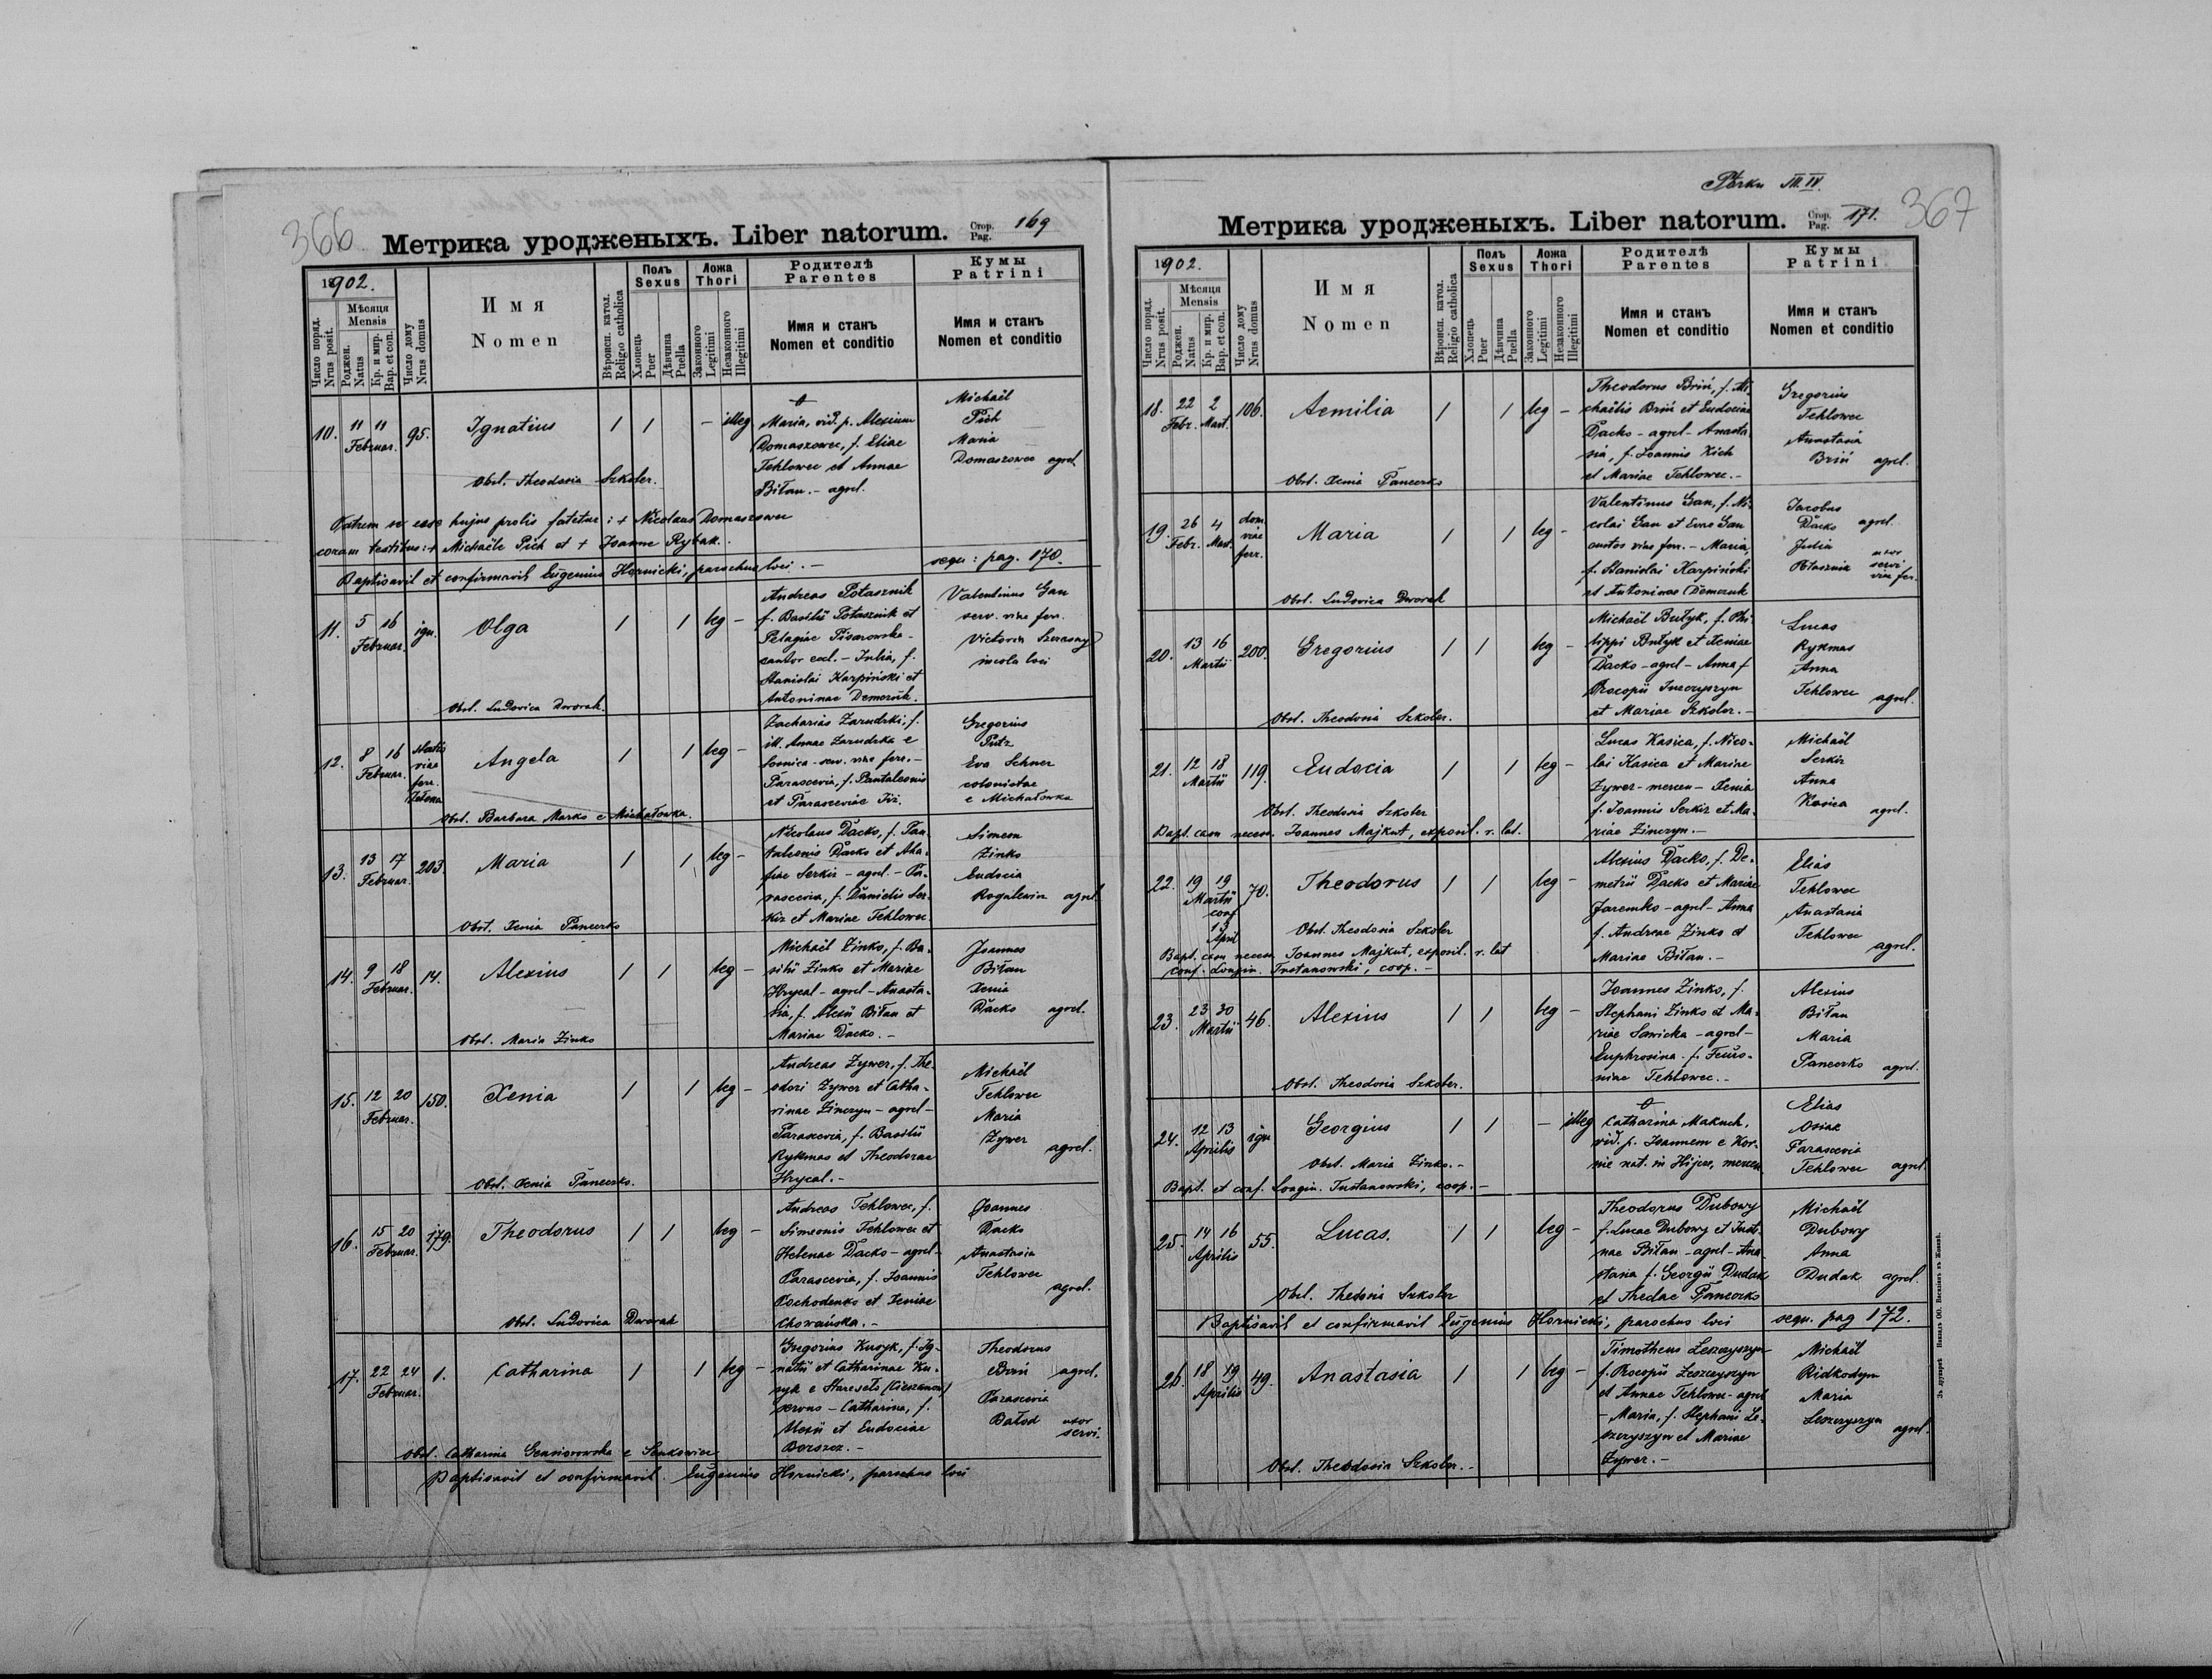 366
Метрика уродженыхъ. Liber natorum.
Стор. Pag. 169
1902.
Число поряд. Nrus posit.
Мѣсяця Mensis
Роджен. Natus
Кр. и мир. Bap. et con.
Число дому Nrus domus
Имя Nomen
Вѣроисп. катол. Religio catholica
Полъ Sexus
Хлопець Puer
Дѣвчина Puella
Ложа Thori
Законного Legitimi
Незаконного Illegitimi
Родителѣ Parentes
Имя и станъ Nomen et conditio
Кумы Patrini
Имя и станъ Nomen et conditio
10. 11 11 Februar. 95. Ignatius 1 1 – illeg
Maria, vid. p. Alexium
Domaszowec, f. Eliae
Tehlowec et Annae
Biłan. – agrel.
Michaël
Pich
Maria
Domaszowec agrel.
Obst. Theodosia Szkoler.
Patrem se esse hujus prolis fatetur: + Nicolaus Domaszowec
coram testibus: + Michaële Pich et + Joanne Rybak.
Baptisavit et confirmavit Eugenius Hornicki, parochus loci. – sequ: pag. 170.
11. 5 16 Februar. ign. Olga 1 1 leg –
Andreas Potasznik
f. Basilii Potasznik et
Pelagiae Pisarowska –
cantor eccl. – Julia, f.
Stanislai Karpiński et
Antoninae Demczuk.
Valentinus Gan
serv. viae ferr.
Victoria
incola loci
Obst. Ludovica Dworak.
12. 8 16 Februar. viae ferr. Angela 1 1 leg –
Zacharias Zarudzki, f.
ill. Annae Zarudzka e
– serv. viae ferr. –
Parascevia, f. Pantaleonis
et Parasceviae
Gregorius
Putz
Eva Schner
colonistae
e Michałowka
Obst. Barbara Marko e Michałowka.
13. 13 17 Februar. 203. Maria 1 1 leg –
Nicolaus Dacko, f. Pan-
taleonis Dacko et Aha-
fiae Serkiz – agrel. – Pa-
rascevia, f. Danielis Ser-
kiz et Mariae Tehlowec
Simeon
Zinko
Eudocia
Rogalewicz agrel.
Obst. Xenia Panczko
14. 9 18 Februar. 14. Alexius 1 1 leg –
Michaël Zinko, f. Ba-
silii Zinko et Mariae
Hrycal – agrel – Anasta-
sia, f. Alexii Biłan et
Mariae Dacko. –
Joannes
Biłan
Xenia
Dacko agrel.
Obst. Maria Zinko
15. 12 20 Februar. 150. Xenia 1 1 leg –
Andreas Zywer, f. The-
odori Zywer et Catha-
rinae Zinczyn – agrel –
Parascevia, f. Basilii
Rykmas et Theodorae
Hrycal. –
Michaël
Tehlowec
Maria
Zywer agrel.
Obst. Xenia Panczko.
16. 15 20 Februar. 179. Theodorus 1 1 leg –
Andreas Tehlowec, f.
Simeonis Tehlowec et
Helenae Dacko – agrel –
Parascevia, f. Joannis
Pochodenko et Xeniae
Chowańska. –
Joannes
Dacko
Anastasia
Tehlowec
agrel.
Obst. Ludovica Dworak
17. 22 24 Februar. 1. Catharina 1 1 leg –
Gregorius Kusyk, f. Ig-
natii et Catharinae Ku-
syk e Staresioło (Cieszanow)
servus – Catharina, f.
Alexii et Eudociae
Borszcz. –
Theodorus
Briń agrel.
Parascevia
Bałod uxor
servi.
Obst. Catharina e
Baptisavit et confirmavit. Eugenius Hornicki, parochus loci
367
III. IV.
Метрика уродженыхъ. Liber natorum.
Стор. Pag. 171.
1902.
Число поряд. Nrus posit.
Мѣсяця Mensis
Роджен. Natus
Кр. и мир. Bap. et con.
Число дому Nrus domus
Имя Nomen
Вѣроисп. катол. Religio catholica
Полъ Sexus
Хлопець Puer
Дѣвчина Puella
Ложа Thori
Законного Legitimi
Незаконного Illegitimi
Родителѣ Parentes
Имя и станъ Nomen et conditio
Кумы Patrini
Имя и станъ Nomen et conditio
18. 22 Febr. 2 Mart. 106. Aemilia 1 1 leg –
Theodorus Briń, f. Mi-
chaëlis Briń et Eudociae
Dacko – agrel – Anasta-
sia, f. Joannis Kich
et Mariae Tehlowec. –
Gregorius
Tehlowec
Anastasia
Briń agrel.
Obst. Xenia Panczko
19. 26 Febr. 4 Mart. dom. viae ferr. Maria 1 1 leg –
Valentinus Gan, f. Ni-
colai Gan et Evae Gan
custos viae ferr. – Maria,
f. Stanislai Karpiński
et Antoninae Demczuk
Jacobus
Dacko agrel.
Julia
Potasznik uxor servi viae fer.
Obst. Ludovica Dworak
20. 13 16 Martii 200. Gregorius 1 1 leg –
Michaël Butyk, f. Phi-
lippi Butyk et Xeniae
Dacko – agrel – Anna f
Procopii
et Mariae Szkoler. –
Lucas
Rykmas
Anna
Tehlowec agrel.
Obst. Theodosia Szkoler.
21. 12 18 Martii 119. Eudocia 1 1 leg –
Lucas Kasica, f. Nico-
lai Kasica et Mariae
Zywer – mercen – Xenia
f. Joannis Serkiz et Ma-
riae Zinczyn. –
Michaël
Serkiz
Anna
Kasica
agrel.
Obst. Theodosia Szkoler
Bapt. casu necess. Joannes Majkut, exposit. r. lat.
22. 19 19 Martii conf 13 April 70. Theodorus 1 1 leg –
Alexius Dacko, f. De-
metrii Dacko et Mariae
Jaremko – agrel – Anna
f. Andreae Zinko et
Mariae Biłan. –
Elias
Tehlowec
Anastasia
Tehlowec
agrel.
Obst. Theodosia Szkoler
Bapt. casu necess. Joannes Majkut, exposit. r. lat
conf. Longin. Tustanowski, coop. –
23. 23 30 Martii 46. Alexius 1 1 leg –
Joannes Zinko, f.
Stephani Zinko et Ma-
riae Sawicka – agrel –
Euphrosina – f. Feuro-
niae Tehlowec. –
Alexius
Biłan
Maria
Panczko agrel.
Obst. Theodosia Szkoler.
24. 12 13 Aprilis ign Georgius 1 1 – illeg
Catharina Makuch,
vid. p. Joannem e Kor-
nie nat. in Hijcze, mercen
Elias
Osiae
Parascevia
Tehlowec agrel
Obst. Maria Zinko. –
Bapt. et conf. Longin. Tustanowski, coop. –
25. 14 16 Aprilis 55. Lucas. 1 1 leg –
Theodorus Dubowy
f. Lucae Dubowy et Justi-
nae Biłan – agrel – Ana-
stasia f. Georgii Dudak
et Theclae Panczko
Michaël
Dubowy
Anna
Dudak agrel.
Obst. Theodosia Szkoler
Baptisavit et confirmavit Eugenius Hornicki, parochus loci sequ. pag 172.
26. 18 19 Aprilis 49. Anastasia 1 1 leg –
Timotheus Leszczyszyn
f. Procopii Leszczyszyn
et Annae Tehlowec – agrel
– Maria, f. Stephani Le-
szczyszyn et Mariae
Zywer. –
Michaël
Ridkodym
Maria
Leszczyszyn
agrel.
Obst. Theodosia Szkoler. –